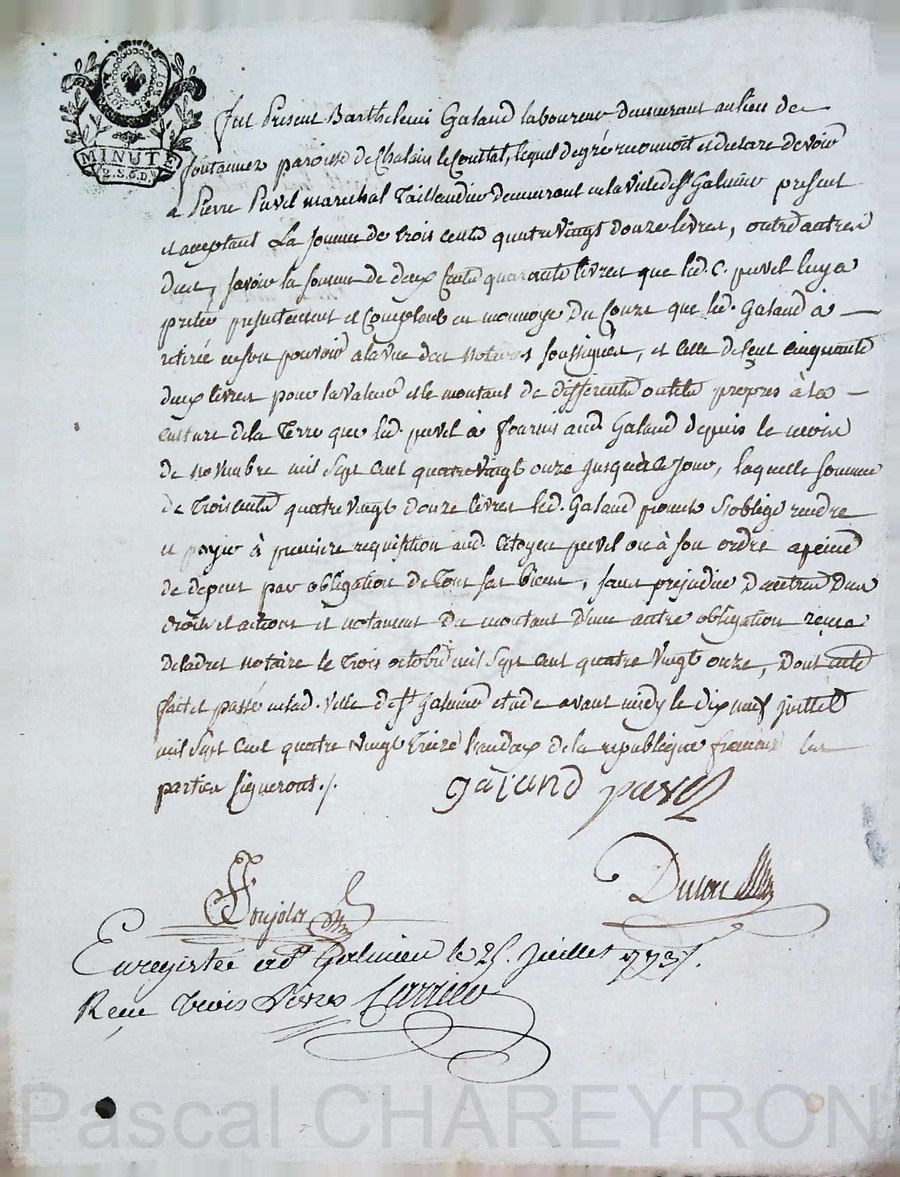 LA LOI
LE ROI
MINUTE
2.S.6.D
Fut Présent Barthelemi Galand laboureur demeurant au lieu de
fontannes paroisse de Chalain le Comtal, lequel de gré reconnoit et declare devoir
a Pierre Puvel marechal Taillandier demeurant en la ville de St Galmier present
et acceptant La somme de trois cents quatre vingt douze livres, outre autres
dues, savoir la somme de deux Cents quarante livres que led. C. puvel luy a
pretée presentement et Comptant en monnoye du Cours que led. Galand à
retirée en son pouvoir a la vue des notaires soussignés, et celle de Cent cinquante
deux livres pour la valeur et le montant de differents outils propres à la
culture de la Terre que led. puvel à fournis aud. Galand depuis le mois
de novembre mil sept cent quatre vingt onze jusqu'à ce jour, laquelle somme
de Trois cents quatre vingt douze livres led. Galand promet s'oblige rendre
et payer à premiere requisition aud. Citoyen puvel ou à son ordre a peine
de depens par obligation de tous ses biens, sans préjudice d'autres dus
droits et actions et notament du montant d'une autre obligation reçue
desdts notaire le Trois octobre mil sept cent quatre vingt onze, Dont acte
fait et passé en lad. ville de St Galmier etude avant midy le dix neuf juillet
mil sept cent quatre vingt treize l'an deux de la republique francaise les
parties signeront ./.
galand puvel
Enregistré a St Galmier le 25. Juillet 1793.
Reçu Trois Livres
Pascal CHAREYRON